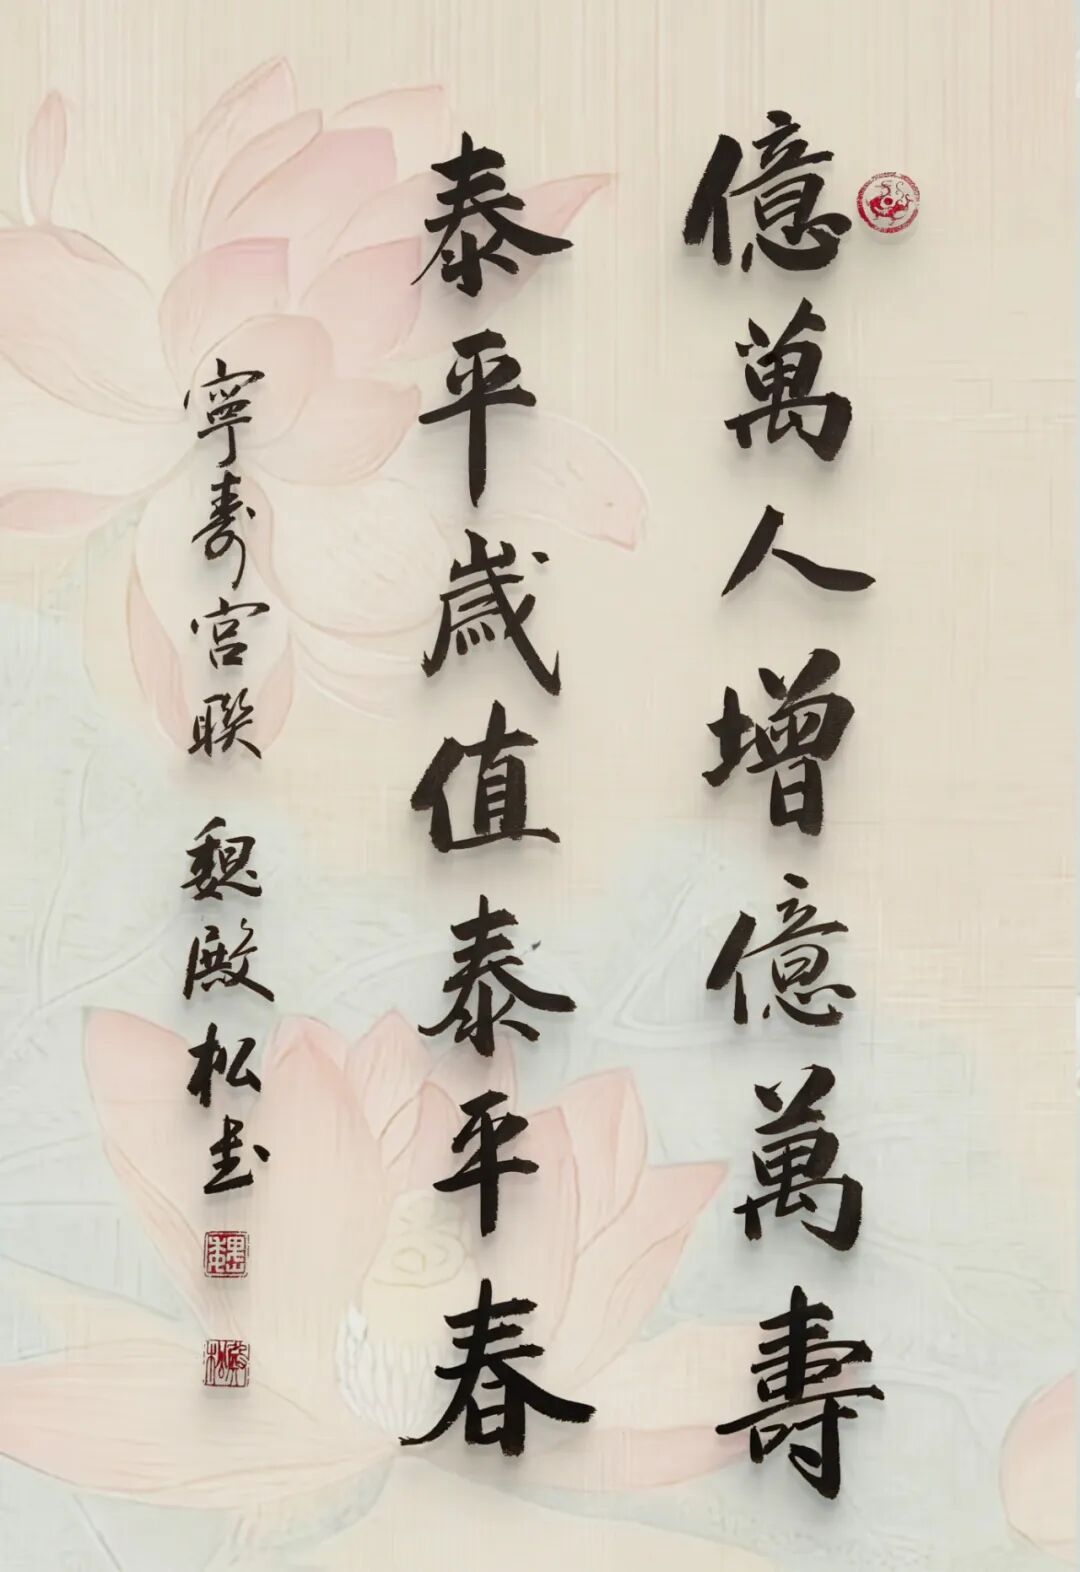 億萬人增億萬壽
泰平歲值泰平春
寧壽宮聯 魏殿松书
魏
殿松